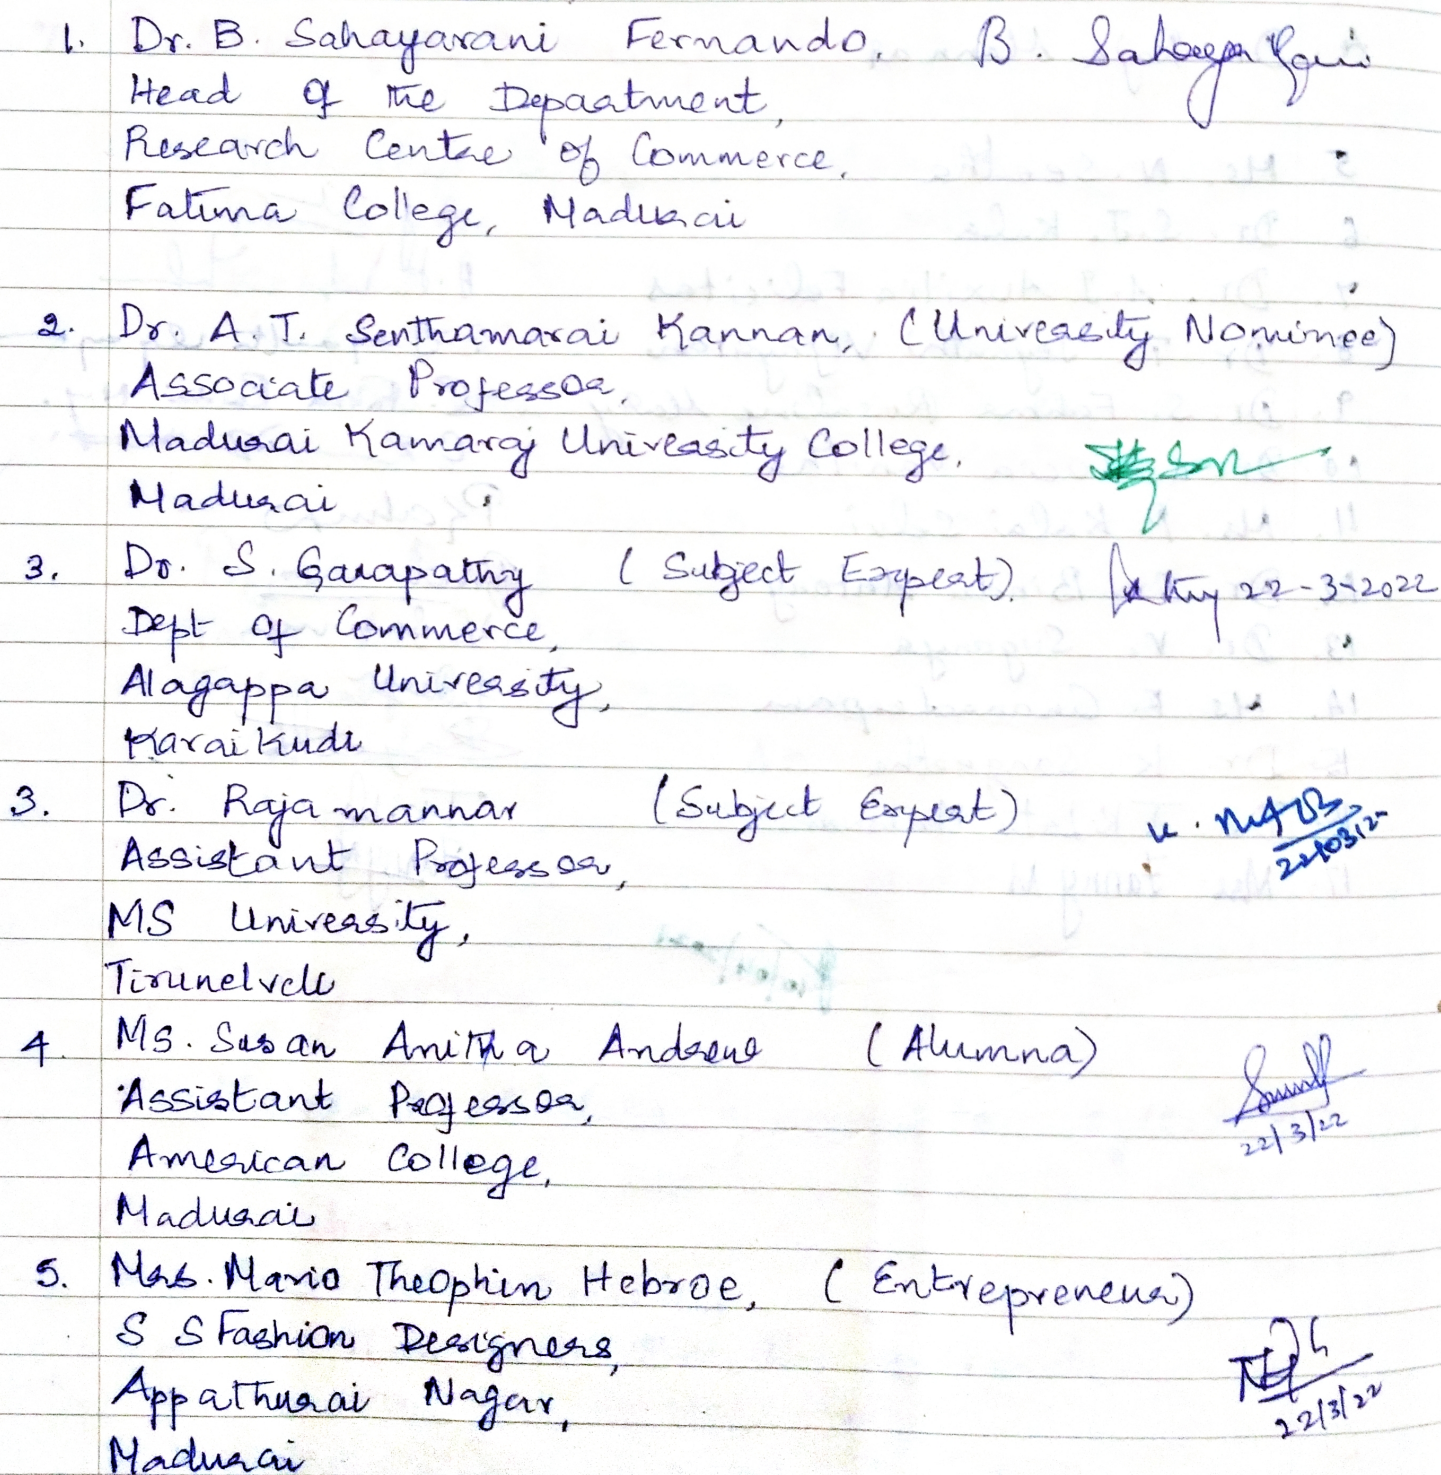 1. Dr. B. Sahayarani Fernando, B. Sahaya Rani
Head of the Department,
Research Centre of Commerce,
Fatima College, Madurai
2. Dr. A.T. Senthamarai Kannan, (University Nominee)
Associate Professor,
Madurai Kamaraj University College,
Madurai
3. Dr. S. Ganapathy (Subject Expert). 22-3-2022
Dept of Commerce,
Alagappa University,
Karaikudi
3. Dr. Rajamannar (Subject Expert)
Assistant Professor, 22/03/22
MS University,
Tirunelveli
4. Ms. Susan Anitha Andrew (Alumna)
Assistant Professor,
American College, 22/3/22
Madurai
5. Mrs. Mario Theophin Hebroe, (Entrepreneur)
S S Fashion Designers,
Appathurai Nagar, 22/3/22
Madurai